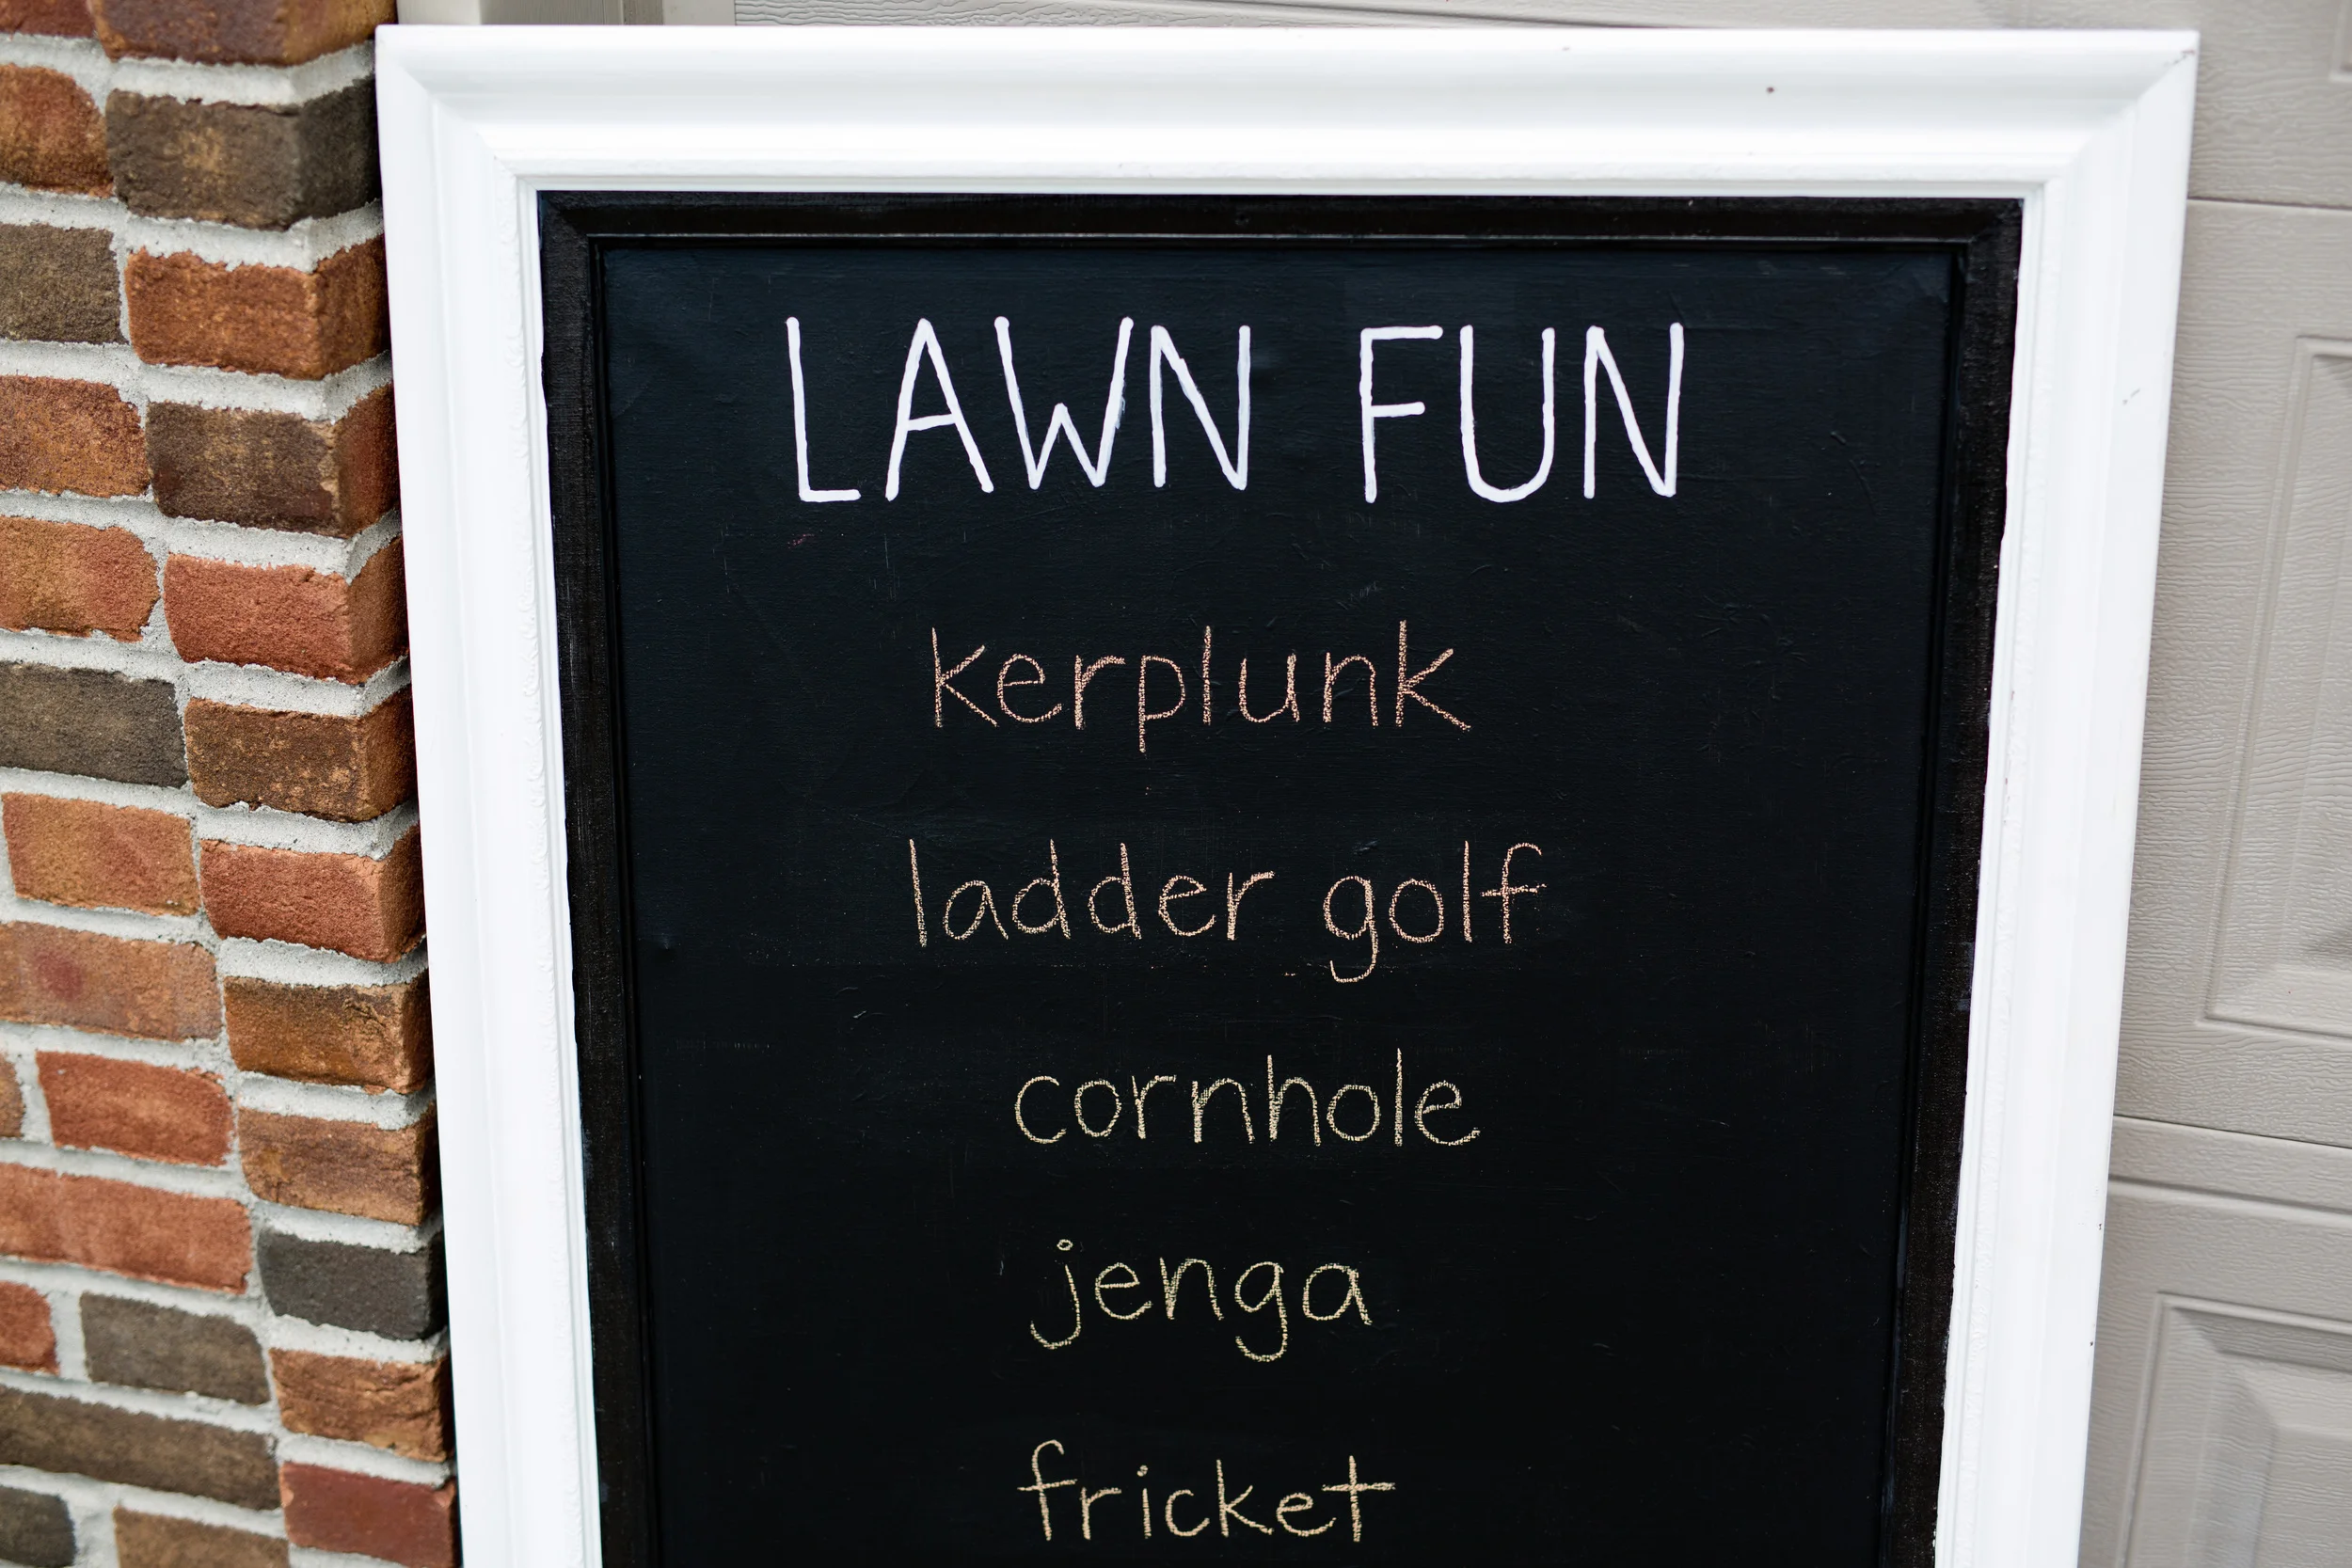 LAWN FUN
kerplunk
ladder golf
cornhole
jenga
fricket